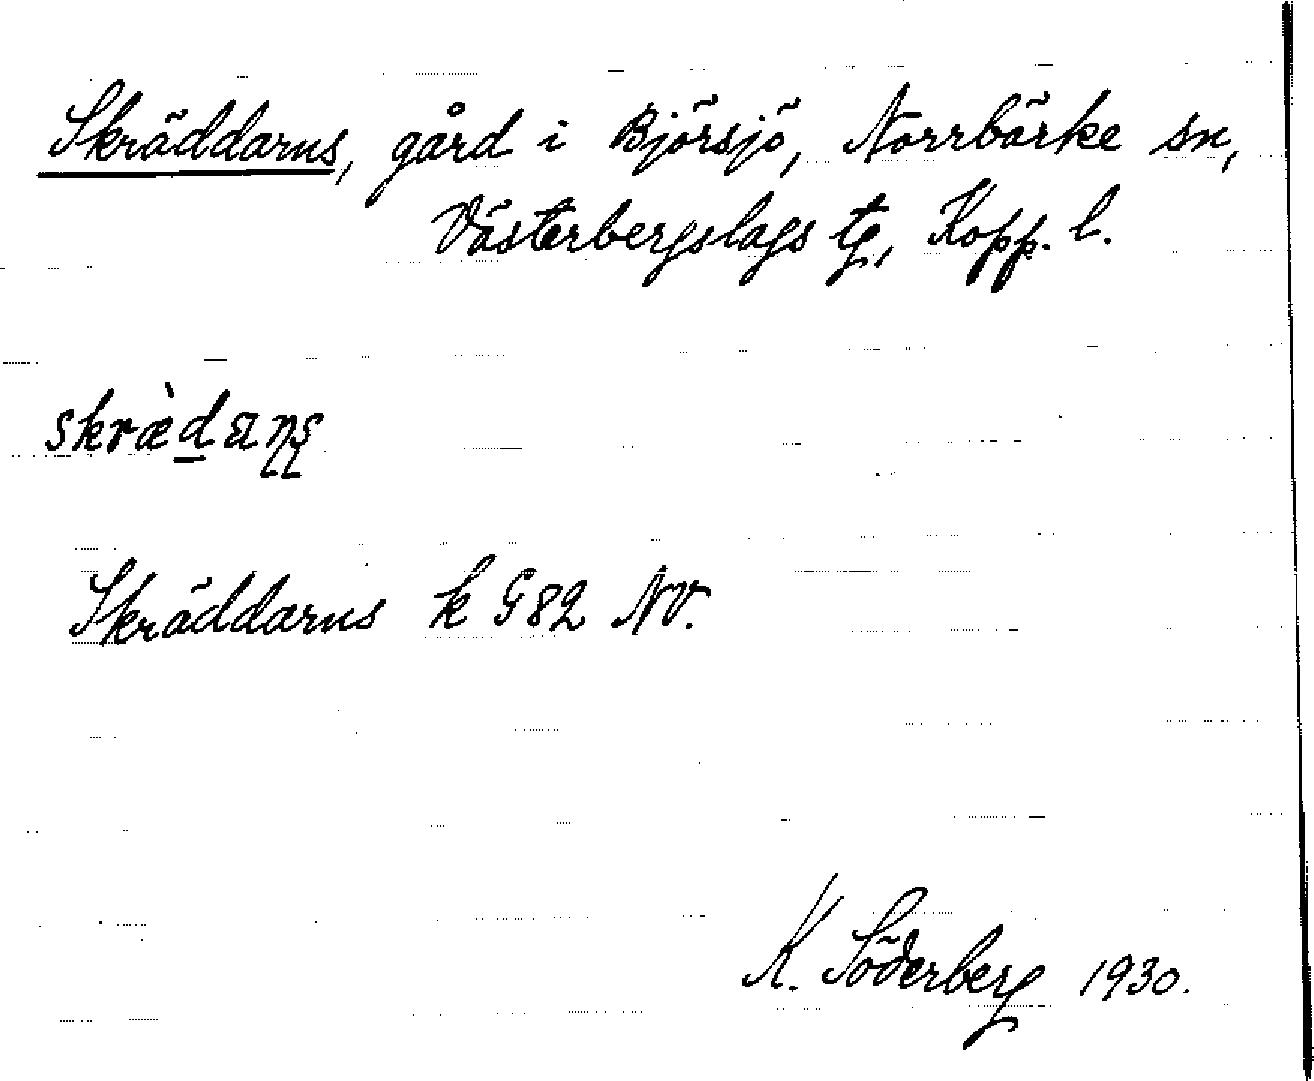 Skräddarns, gård i Björsjö, Norrbärke sn,
Västerbergslags tg, Kopp. l.
skræ̀d̲aꞑʂ
Skräddarns k G82 NV.
K. Söderberg 1930.